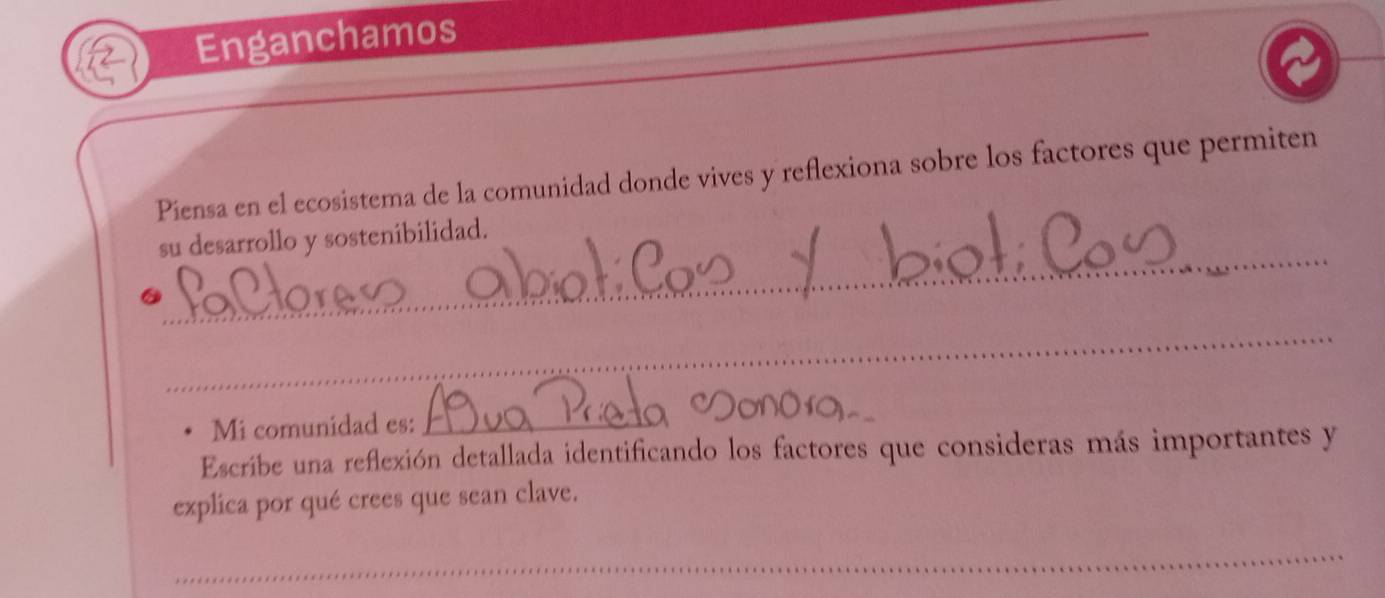 Enganchamos
Piensa en el ecosistema de la comunidad donde vives y reflexiona sobre los factores que permiten
su desarrollo y sostenibilidad.
factores abioticos y bioticos
• Mi comunidad es: Agua Prieta sonora.
Escribe una reflexión detallada identificando los factores que consideras más importantes y
explica por qué crees que sean clave.